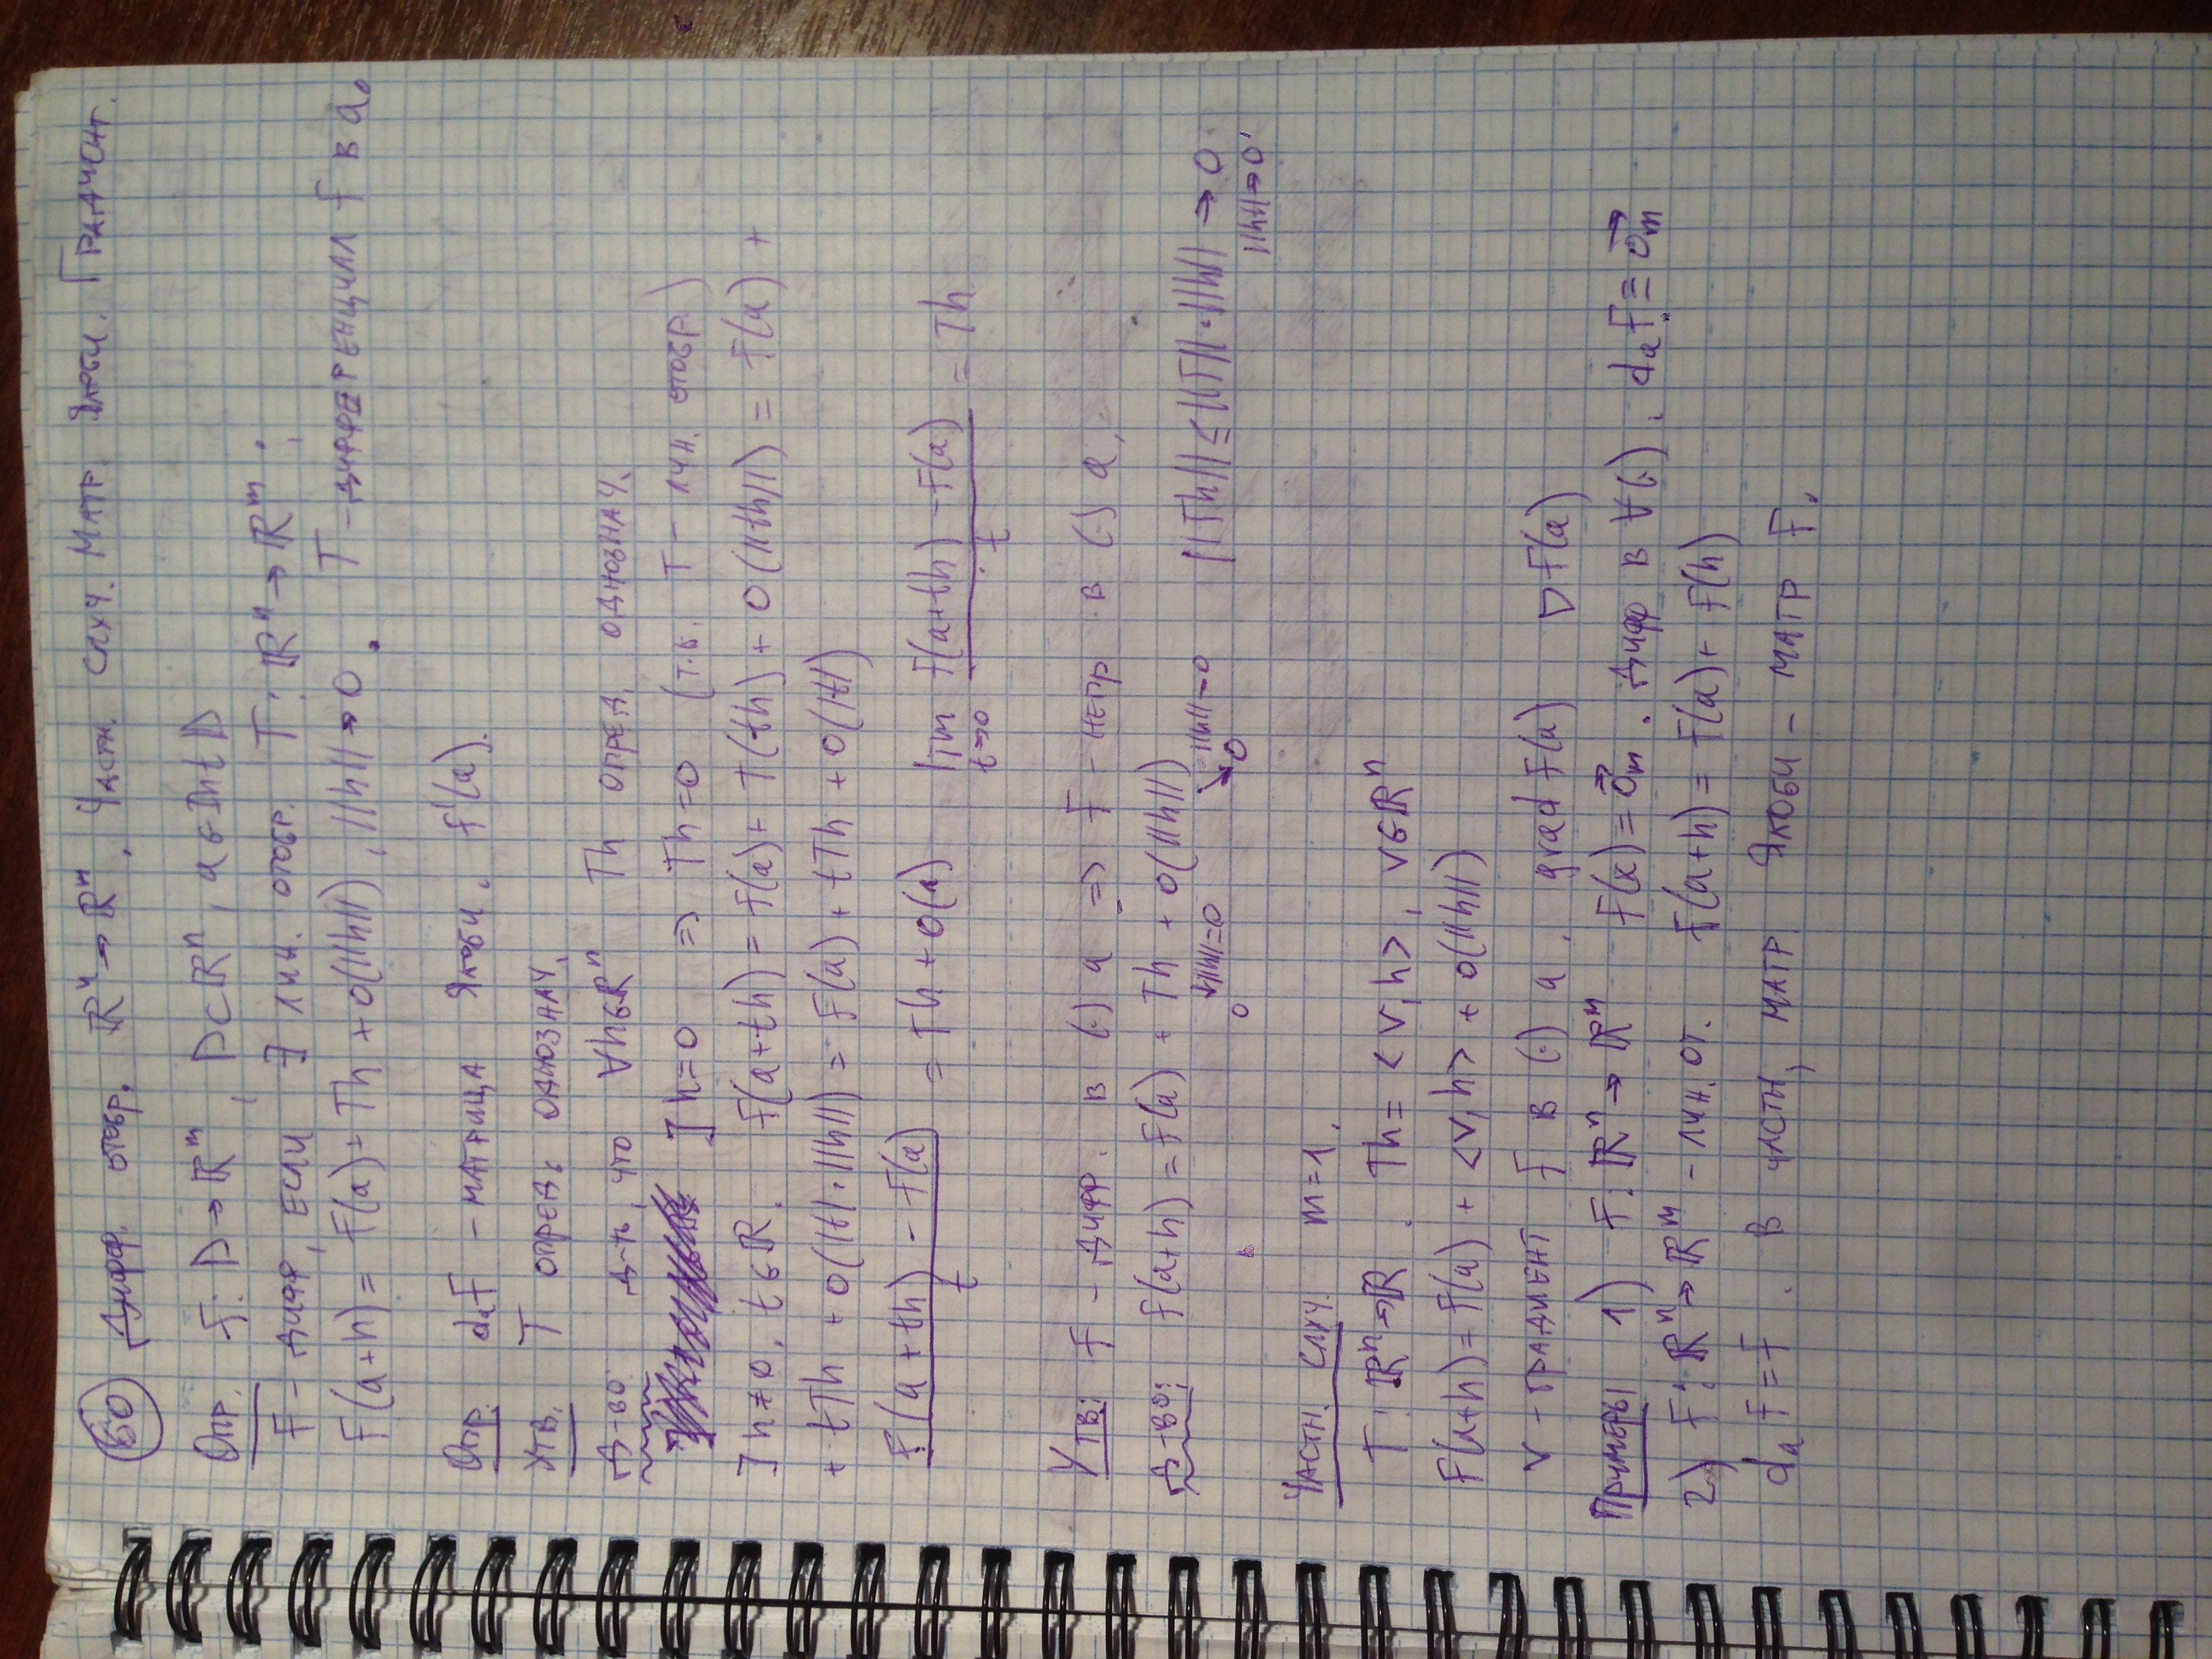 60 Дифф. отобр. ℝⁿ → ℝᵐ. Частн. случ. Матр. Якоби. Градиент.
Опр. f: D → ℝᵐ, D ⊂ ℝⁿ, a ∈ Int D
f – дифф, если ∃ лин. отобр. T: ℝⁿ → ℝᵐ :
f(a+h) = f(a) + Th + o(||h||), ||h|| → 0. T – дифференциал f в a.
Опр. dₐf – матрица Якоби. f'(a).
Утв. T опред. однознач.
Д-во: Д-ть, что ∀h∈ℝⁿ Th опред. однознач.
] h=0 => Th=0 (т.к. T – лин. отобр.)
] h≠0, t∈ℝ. f(a+th) = f(a) + T(th) + o(||th||) = f(a) +
+ tTh + o(|t|·||h||) = f(a) + tTh + o(|t|)
(f(a+th) – f(a))/t = Th + o(1) lim t→0 (f(a+th) – f(a))/t = Th
Утв: f – дифф. в (·) a => f – непр в (·) a.
Д-во: f(a+h) = f(a) + Th + o(||h||)
||h||=0 ||h||→0 ||Th|| ≤ ||T||·||h|| → 0
0 0 ||h||→0
Частн. случ. m=1.
T: ℝⁿ→ℝ. Th = <v,h>, v∈ℝⁿ
f(a+h) = f(a) + <v,h> + o(||h||)
v – градиент f в (·) a. grad f(a) ∇f(a)
Примеры 1) f: ℝⁿ → ℝᵐ f(x) = 0⃗ₘ. Дифф в ∀(·). dₐf ≡ 0⃗ₘ
2) f: ℝⁿ → ℝᵐ – лин. от. f(a+h) = f(a) + f(h)
dₐf = f. В частн, матр Якоби – матр f.